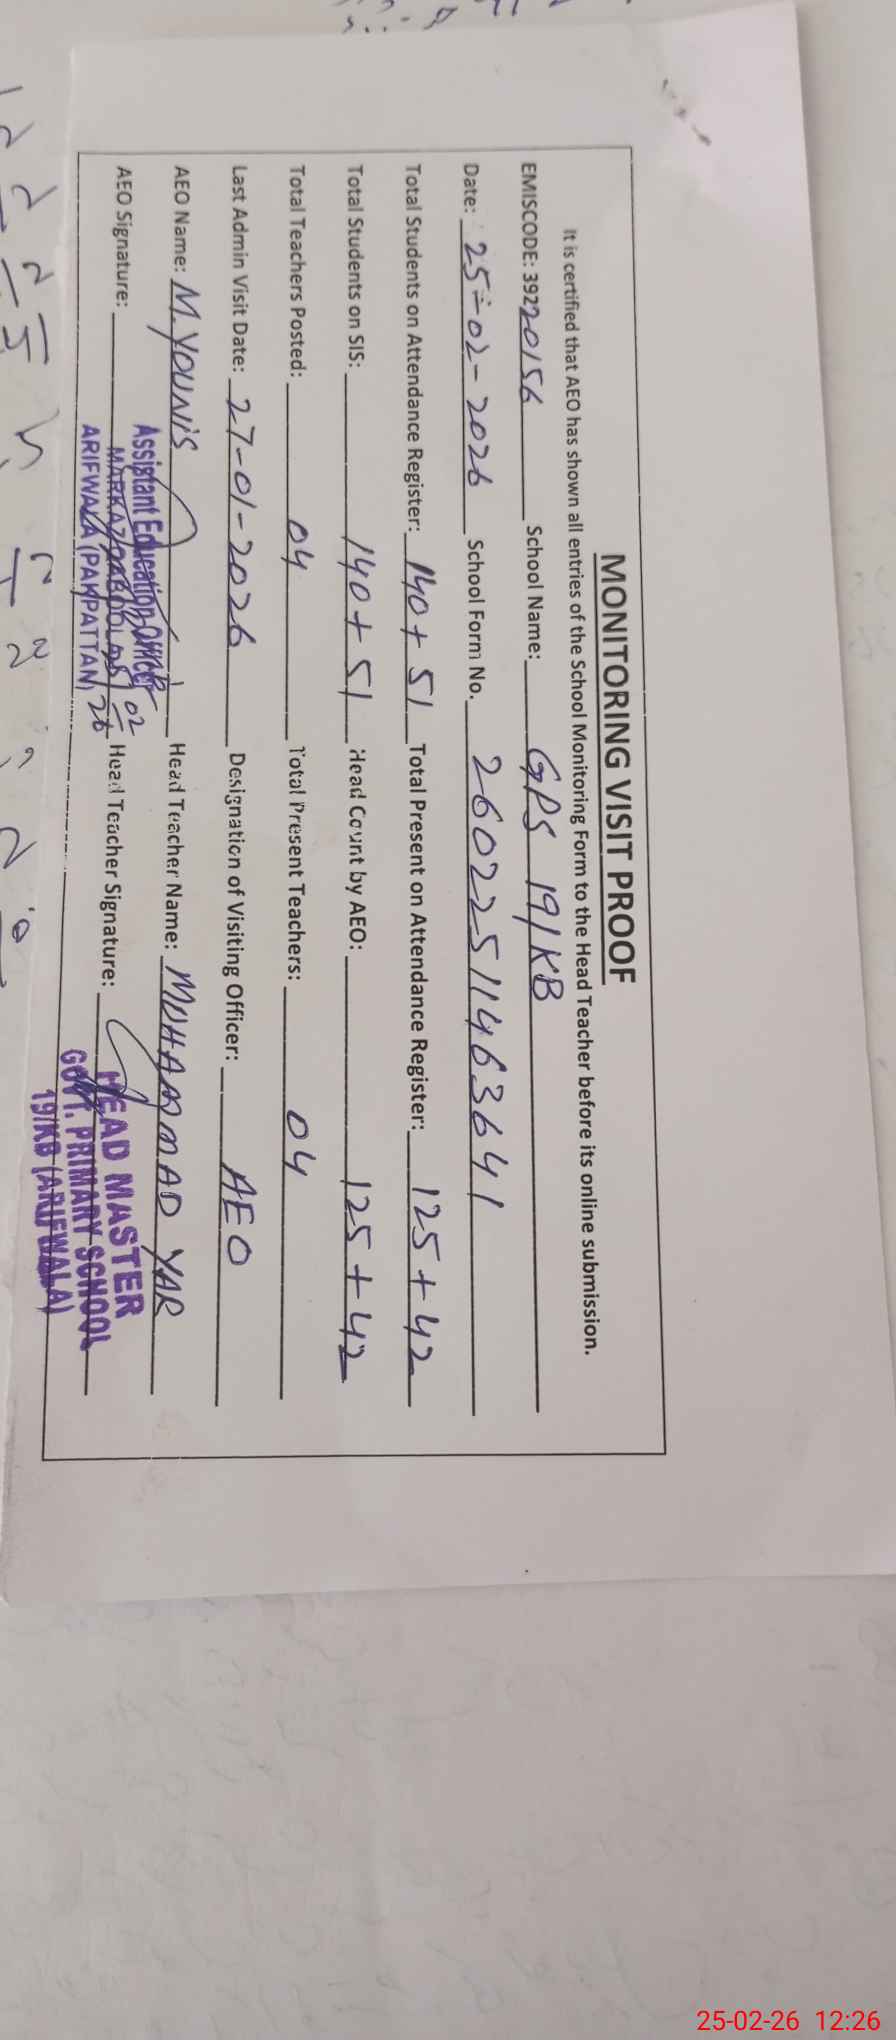 MONITORING VISIT PROOF
It is certified that AEO has shown all entries of the School Monitoring Form to the Head Teacher before its online submission.
EMISCODE: 39220156 School Name: GPS 191/KB
Date: 25-02-2026 School Form No. 26022511463641
Total Students on Attendance Register: 140+51 Total Present on Attendance Register: 125+42
Total Students on SIS: 140+51 Head Count by AEO: 125+42
Total Teachers Posted: 04 Total Present Teachers: 04
Last Admin Visit Date: 27-01-2026 Designation of Visiting Officer: AEO
AEO Name: M. YOUNIS Head Teacher Name: MUHAMMAD YAR
AEO Signature: Head Teacher Signature:
Assistant Education Officer
MARKAZ
ARIFWALA (PAKPATTAN)
HEAD MASTER
GOVT. PRIMARY SCHOOL
191/KB (ARIFWALA)
25-02-26 12:26